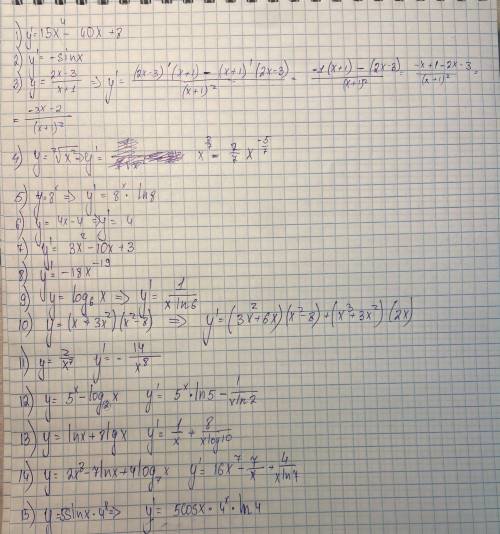 1) y'=15x⁴ - 40x + 3
2) y' = -sinx
3) y = (2x-3)/(x+1) => y' = ((2x-3)'(x+1) - (x+1)'(2x-3))/(x+1)² = (-1(x+1) - (2x-3))/(x+1)² = (-x+1-2x-3)/(x+1)² =
= (-3x-2)/(x+1)²
4) y = ⁷√x² => y' = x^(2/7) = 2/7 x^(-5/7)
5) y=8ˣ => y' = 8ˣ · ln8
6) y = 4x-4 => y' = 4
7) y' = 3x² - 10x + 3
8) y' = -18x⁻¹⁹
9) y = log₆ x => y' = 1/(x ln6)
10) y = (x³+3x²)(x²-8) => y' = (3x²+6x)(x²-8) + (x³+3x²)(2x)
11) y = 2/x⁷ y' = - 14/x⁸
12) y = 5ˣ - log₂x y' = 5ˣ · ln5 - 1/(x ln2)
13) y = lnx + 8lgx y' = 1/x + 8/(x log10)
14) y = 2x⁸ - 7lnx + 4log₇ x y' = 16x⁷ - 7/x + 4/(x ln7)
15) y = 5sinx · 4ˣ => y' = 5cosx · 4ˣ · ln4